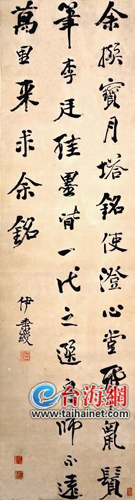 余撰寶月塔銘使澄心堂紙鼠鬚
筆李廷珪墨皆一代之選舟師不遠
萬里來求余銘
伊秉綬
台海网
www.taihainet.com